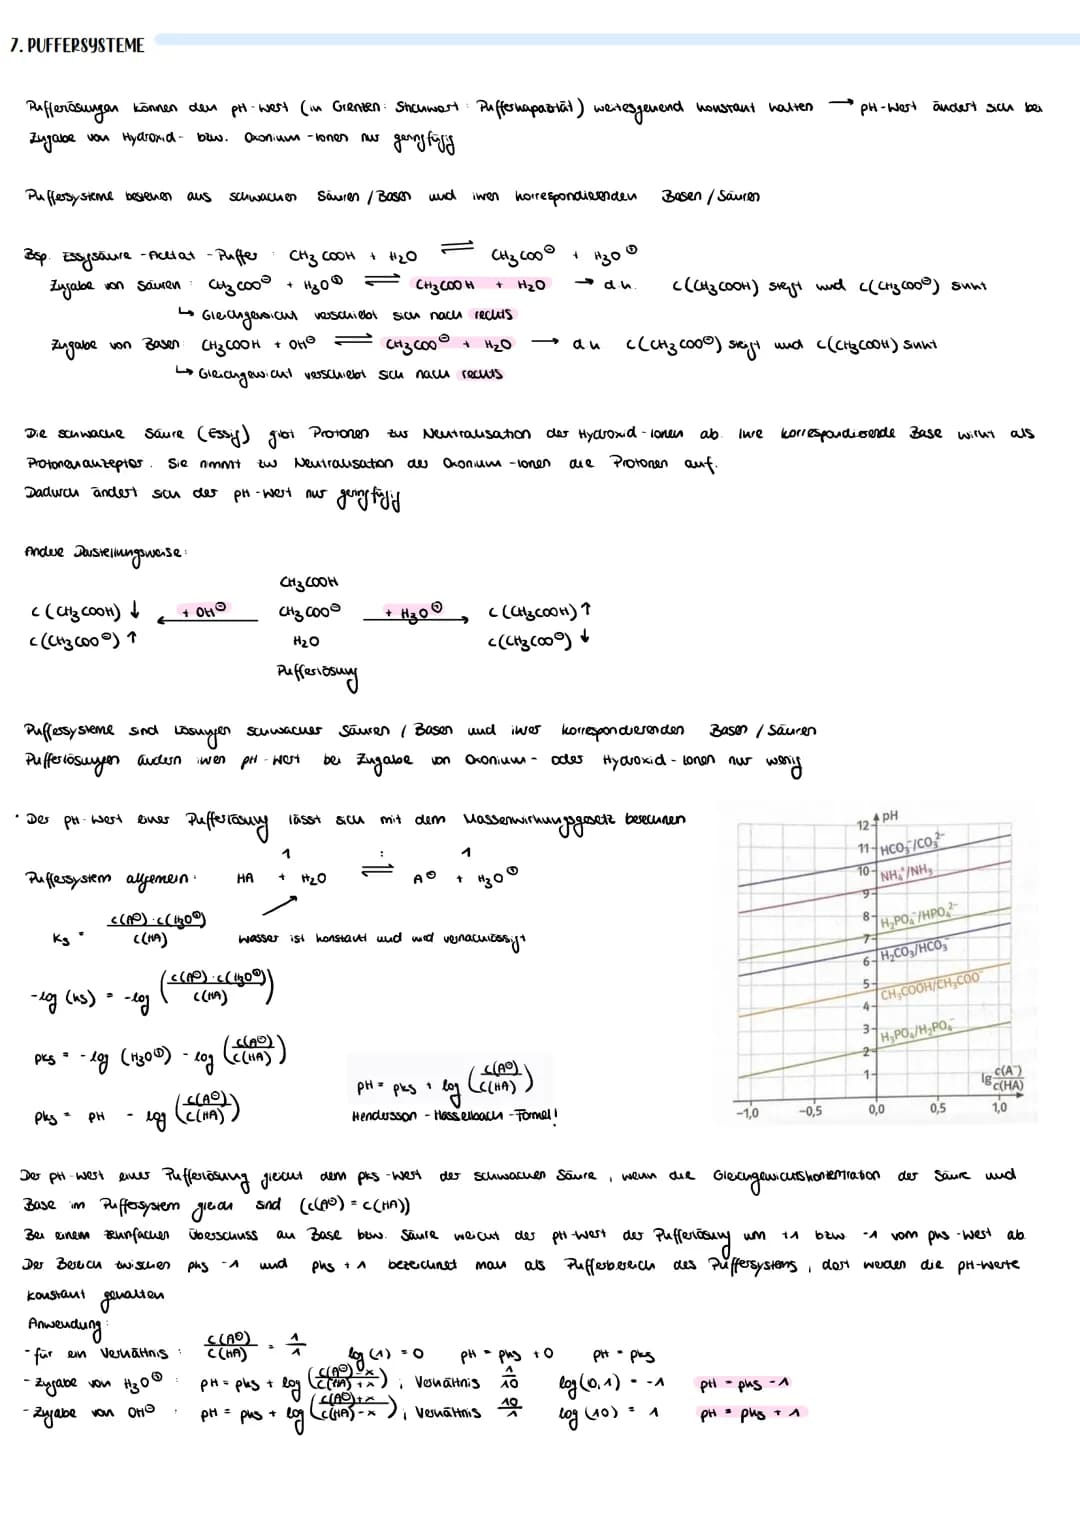 7. PUFFERSYSTEME
Pufferlösungen können den pH-Wert (in Grenzen: Stichwort: Pufferkapazität) weitesgehend konstant halten → pH-Wert ändert sich bei
Zugabe von Hydroxid- bzw. Oxonium-Ionen nur geringfügig
Puffersysteme bestehen aus schwachen Säuren / Basen und ihren korrespondierenden Basen / Säuren
Bsp. Essigsäure-Acetat-Puffer: CH₃COOH + H₂O ⇌ CH₃COO⊖ + H₃O⊕
Zugabe von Säuren: CH₃COO⊖ + H₃O⊕ ⇌ CH₃COOH + H₂O → d.h. c(CH₃COOH) steigt und c(CH₃COO⊖) sinkt
↳ Gleichgewicht verschiebt sich nach rechts
Zugabe von Basen: CH₃COOH + OH⊖ ⇌ CH₃COO⊖ + H₂O → d.h. c(CH₃COO⊖) steigt und c(CH₃COOH) sinkt
↳ Gleichgewicht verschiebt sich nach rechts
Die schwache Säure (Essig) gibt Protonen zur Neutralisation der Hydroxid-Ionen ab. Ihre korrespondierende Base wirkt als
Protonenakzeptor. Sie nimmt zur Neutralisation der Oxonium-Ionen die Protonen auf.
Dadurch ändert sich der pH-Wert nur geringfügig
Andere Darstellungsweise:
CH₃COOH
c(CH₃COOH) ↓ ← + OH⊖ CH₃COO⊖ + H₃O⊕ → c(CH₃COOH) ↑
c(CH₃COO⊖) ↑ H₂O c(CH₃COO⊖) ↓
Pufferlösung
Puffersysteme sind Lösungen schwacher Säuren / Basen und ihrer korrespondierenden Basen / Säuren
Pufferlösungen ändern ihren pH-Wert bei Zugabe von Oxonium- oder Hydroxid-Ionen nur wenig
· Der pH-Wert einer Pufferlösung lässt sich mit dem Massenwirkungsgesetz berechnen
1 : 1
Puffersystem allgemein: HA + H₂O ⇌ A⊖ + H₃O⊕
Ks = c(A⊖)·c(H₃O⊕) / c(HA)
Wasser ist konstant und wird vernachlässigt
-log (Ks) = -log (c(A⊖)·c(H₃O⊕) / c(HA))
pKs = -log (H₃O⊕) - log (c(A⊖) / c(HA))
pKs = pH - log (c(A⊖) / c(HA))
pH = pKs + log (c(A⊖) / c(HA))
Henderson-Hasselbach-Formel!
pH
12
11
10
9
8
7
6
5
4
3
2
1
HCO₃⁻/CO₃²⁻
NH₄⁺/NH₃
H₂PO₄⁻/HPO₄²⁻
H₂CO₃/HCO₃⁻
CH₃COOH/CH₃COO⁻
H₃PO₄/H₂PO₄⁻
lg c(A⁻) / c(HA)
-1,0 -0,5 0,0 0,5 1,0
Der pH-Wert einer Pufferlösung gleicht dem pKs-Wert der schwachen Säure, wenn die Gleichgewichtskonzentration der Säure und
Base im Puffersystem gleich sind (c(A⊖) = c(HA))
Bei einem zehnfachen Überschuss an Base bzw. Säure weicht der pH-Wert der Pufferlösung um +1 bzw -1 vom pKs-Wert ab.
Der Bereich zwischen pKs -1 und pKs +1 bezeichnet man als Pufferbereich des Puffersystems, dort werden die pH-Werte
konstant gehalten
Anwendung:
- für ein Verhältnis: c(A⊖) / c(HA) = 1/1 log (1) = 0 pH = pKs + 0 pH = pKs
- Zugabe von H₃O⊕: pH = pKs + log (c(A⊖)-x / c(HA)+x); Verhältnis 1/10 log (0,1) = -1 pH = pKs - 1
- Zugabe von OH⊖: pH = pKs + log (c(A⊖)+x / c(HA)-x); Verhältnis 10/1 log (10) = 1 pH = pKs + 1